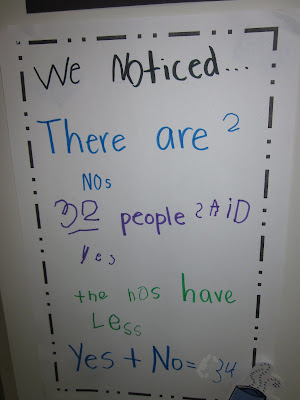 We Noticed...
There are 2
NOs
32 people SAiD
Yes
the nOs have
Less
Yes + No = 34